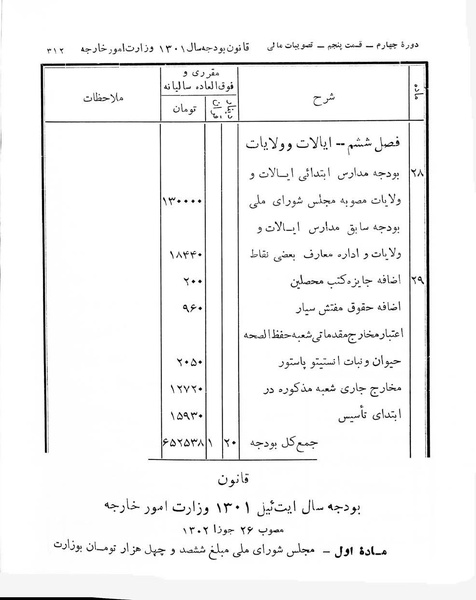 دورهٔ چهارم — قسمت پنجم — تصویبات مالی قانون بودجه سال ۱۳۰۱ وزارت امور خارجه ۳۱۲
ماده شرح مقرری و فوق‌العاده سالیانه ملاحظات
دینار قران تومان
فصل ششم -- ایالات و ولایات
۲۸ بودجه مدارس ابتدائی ایالات و
ولایات مصوبه مجلس شورای ملی ۱۳۰۰۰۰
بودجه سابق مدارس ایالات و
ولایات و اداره معارف بعضی نقاط ۱۸۴۴۰
۲۹ اضافه جایزه کتب محصلین ۲۰۰
اضافه حقوق مفتش سیار ۹۶۰
اعتبار مخارج مقدماتی شعبه حفظ الصحه
حیوان و نبات انستیتو پاستور ۲۰۵۰
مخارج جاری شعبه مذکوره در ۱۲۷۲۰
ابتدای تأسیس ۱۵۹۳۰
جمع کل بودجه ۲۰ ۱ ۶۵۲۵۳۸
قانون
بودجه سال ایت‌ئیل ۱۳۰۱ وزارت امور خارجه
مصوب ۲۶ جوزا ۱۳۰۲
مادهٔ اول — مجلس شورای ملی مبلغ ششصد و چهل هزار تومان بوزارت